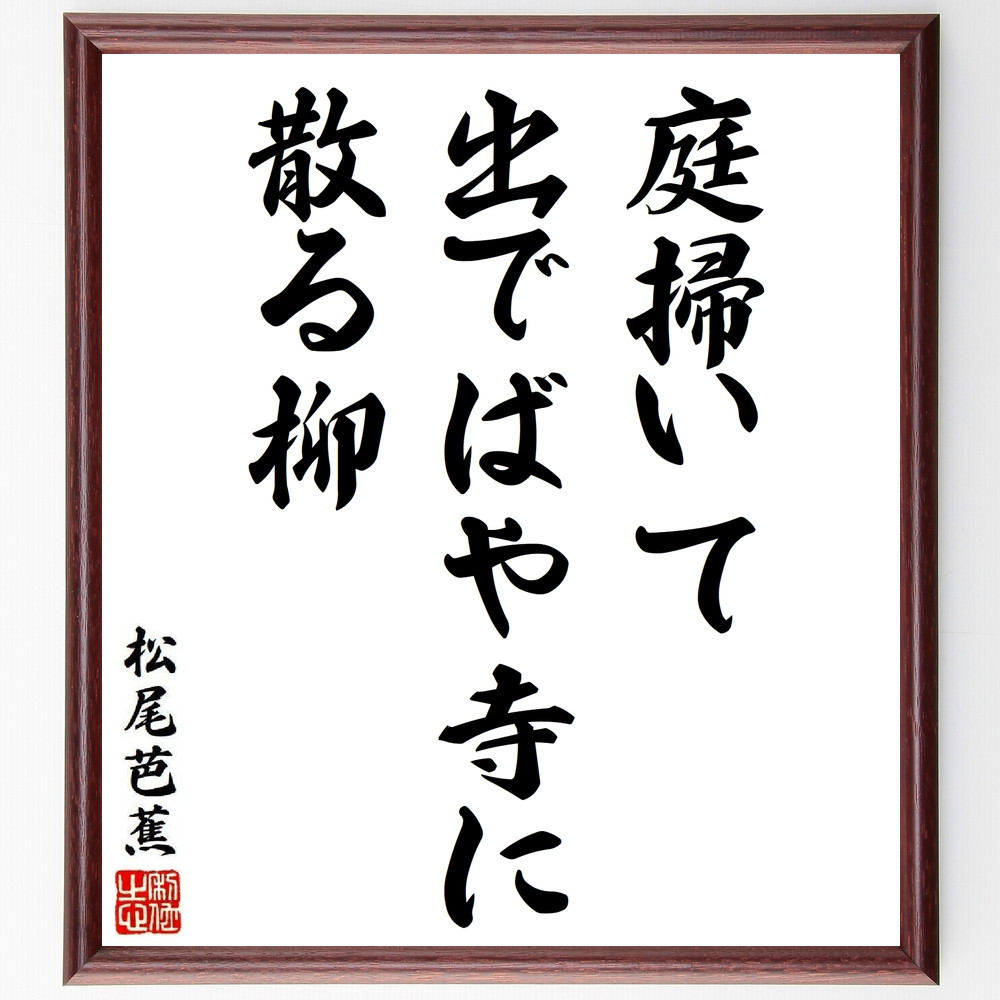 庭掃いて
出でばや寺に
散る柳
松尾芭蕉